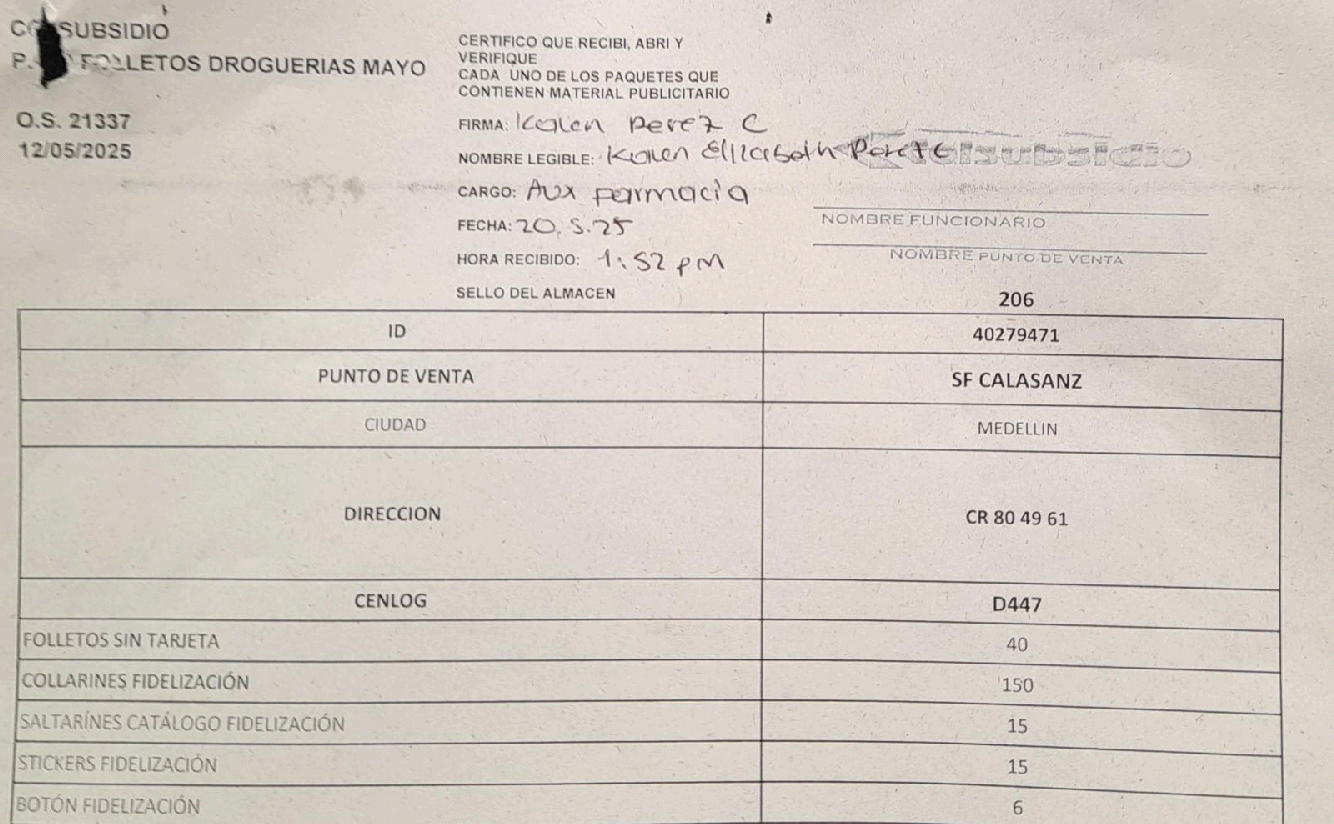 SUBSIDIO
FOLLETOS DROGUERIAS MAYO
O.S. 21337
12/05/2025
CERTIFICO QUE RECIBI, ABRI Y
VERIFIQUE
CADA UNO DE LOS PAQUETES QUE
CONTIENEN MATERIAL PUBLICITARIO
FIRMA: Karen Perez C
NOMBRE LEGIBLE: Karen Elizabeth
CARGO: Aux Farmacia
FECHA: 20.5.25
HORA RECIBIDO: 1:52 pm
SELLO DEL ALMACEN
NOMBRE FUNCIONARIO
NOMBRE PUNTO DE VENTA
206
ID 40279471
PUNTO DE VENTA SF CALASANZ
CIUDAD MEDELLIN
DIRECCION CR 80 49 61
CENLOG D447
FOLLETOS SIN TARJETA 40
COLLARINES FIDELIZACIÓN 150
SALTARÍNES CATÁLOGO FIDELIZACIÓN 15
STICKERS FIDELIZACIÓN 15
BOTÓN FIDELIZACIÓN 6